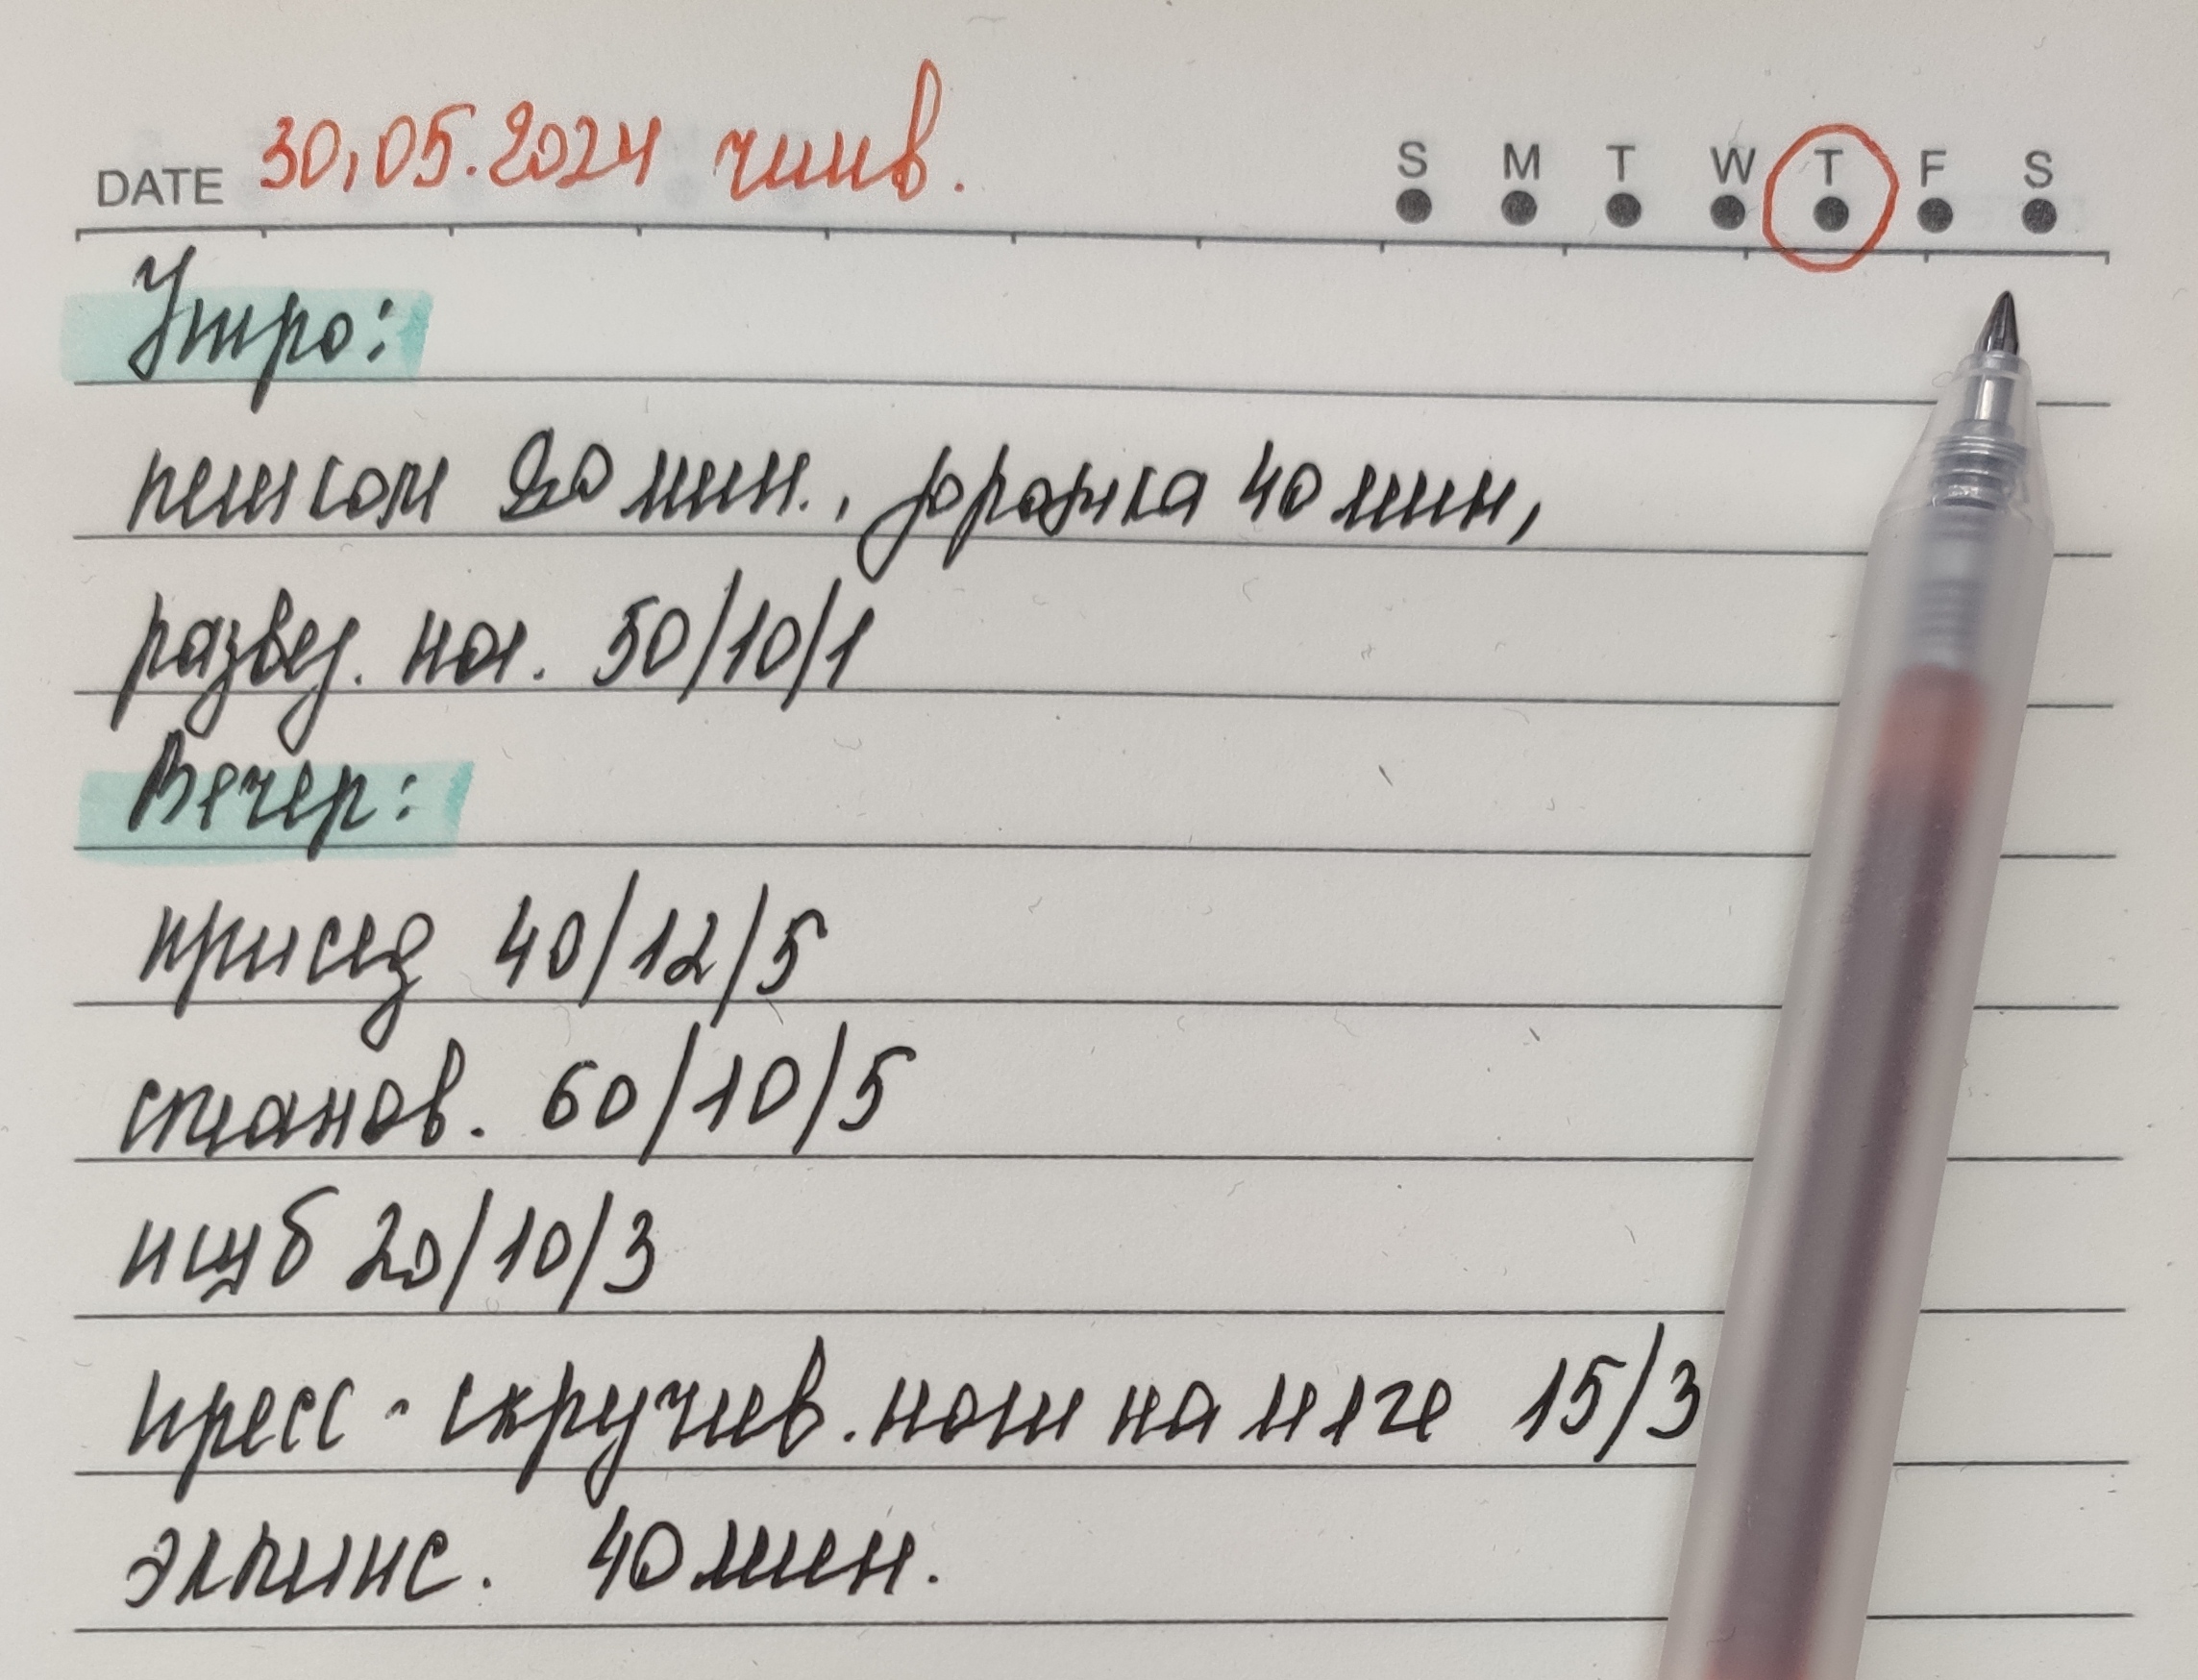 DATE 30.05.2024 четв. S M T W T F S
Утро:
пешком 20 мин., дорожка 40 мин,
развед. ног. 50/10/1
Вечер:
присед 40/12/5
станов. 60/10/5
20/10/3
пресс - скручив. ноги на 15/3
эллипс. 40 мин.